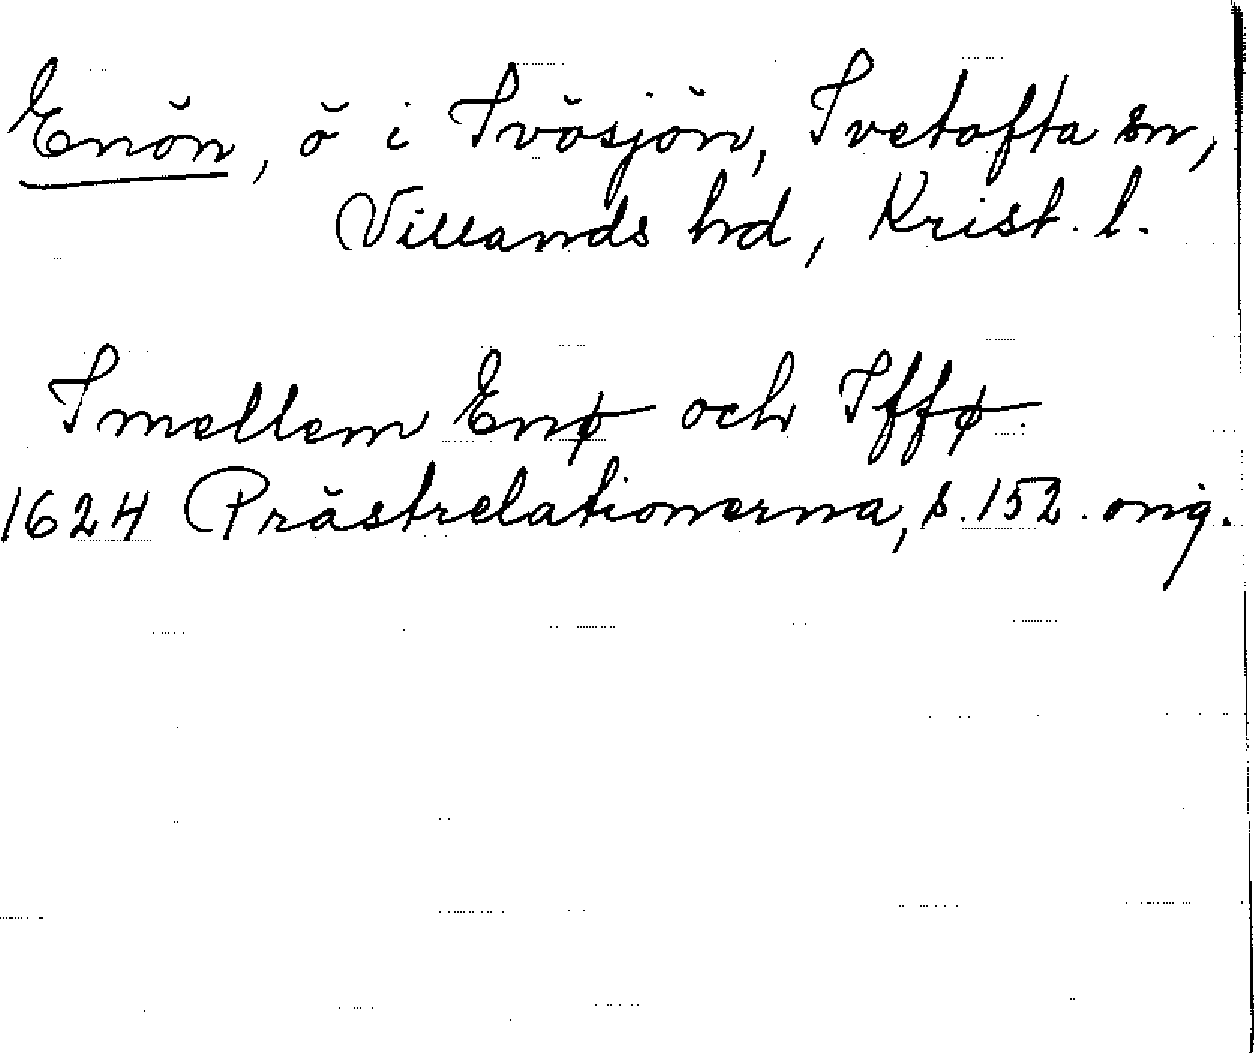 Enön, ö i Ivösjön, Ivetofta sn,
Villands hd, Krist. l.
Imellem Enø och Iffø
1624 Prästrelationerna, s. 152. orig.